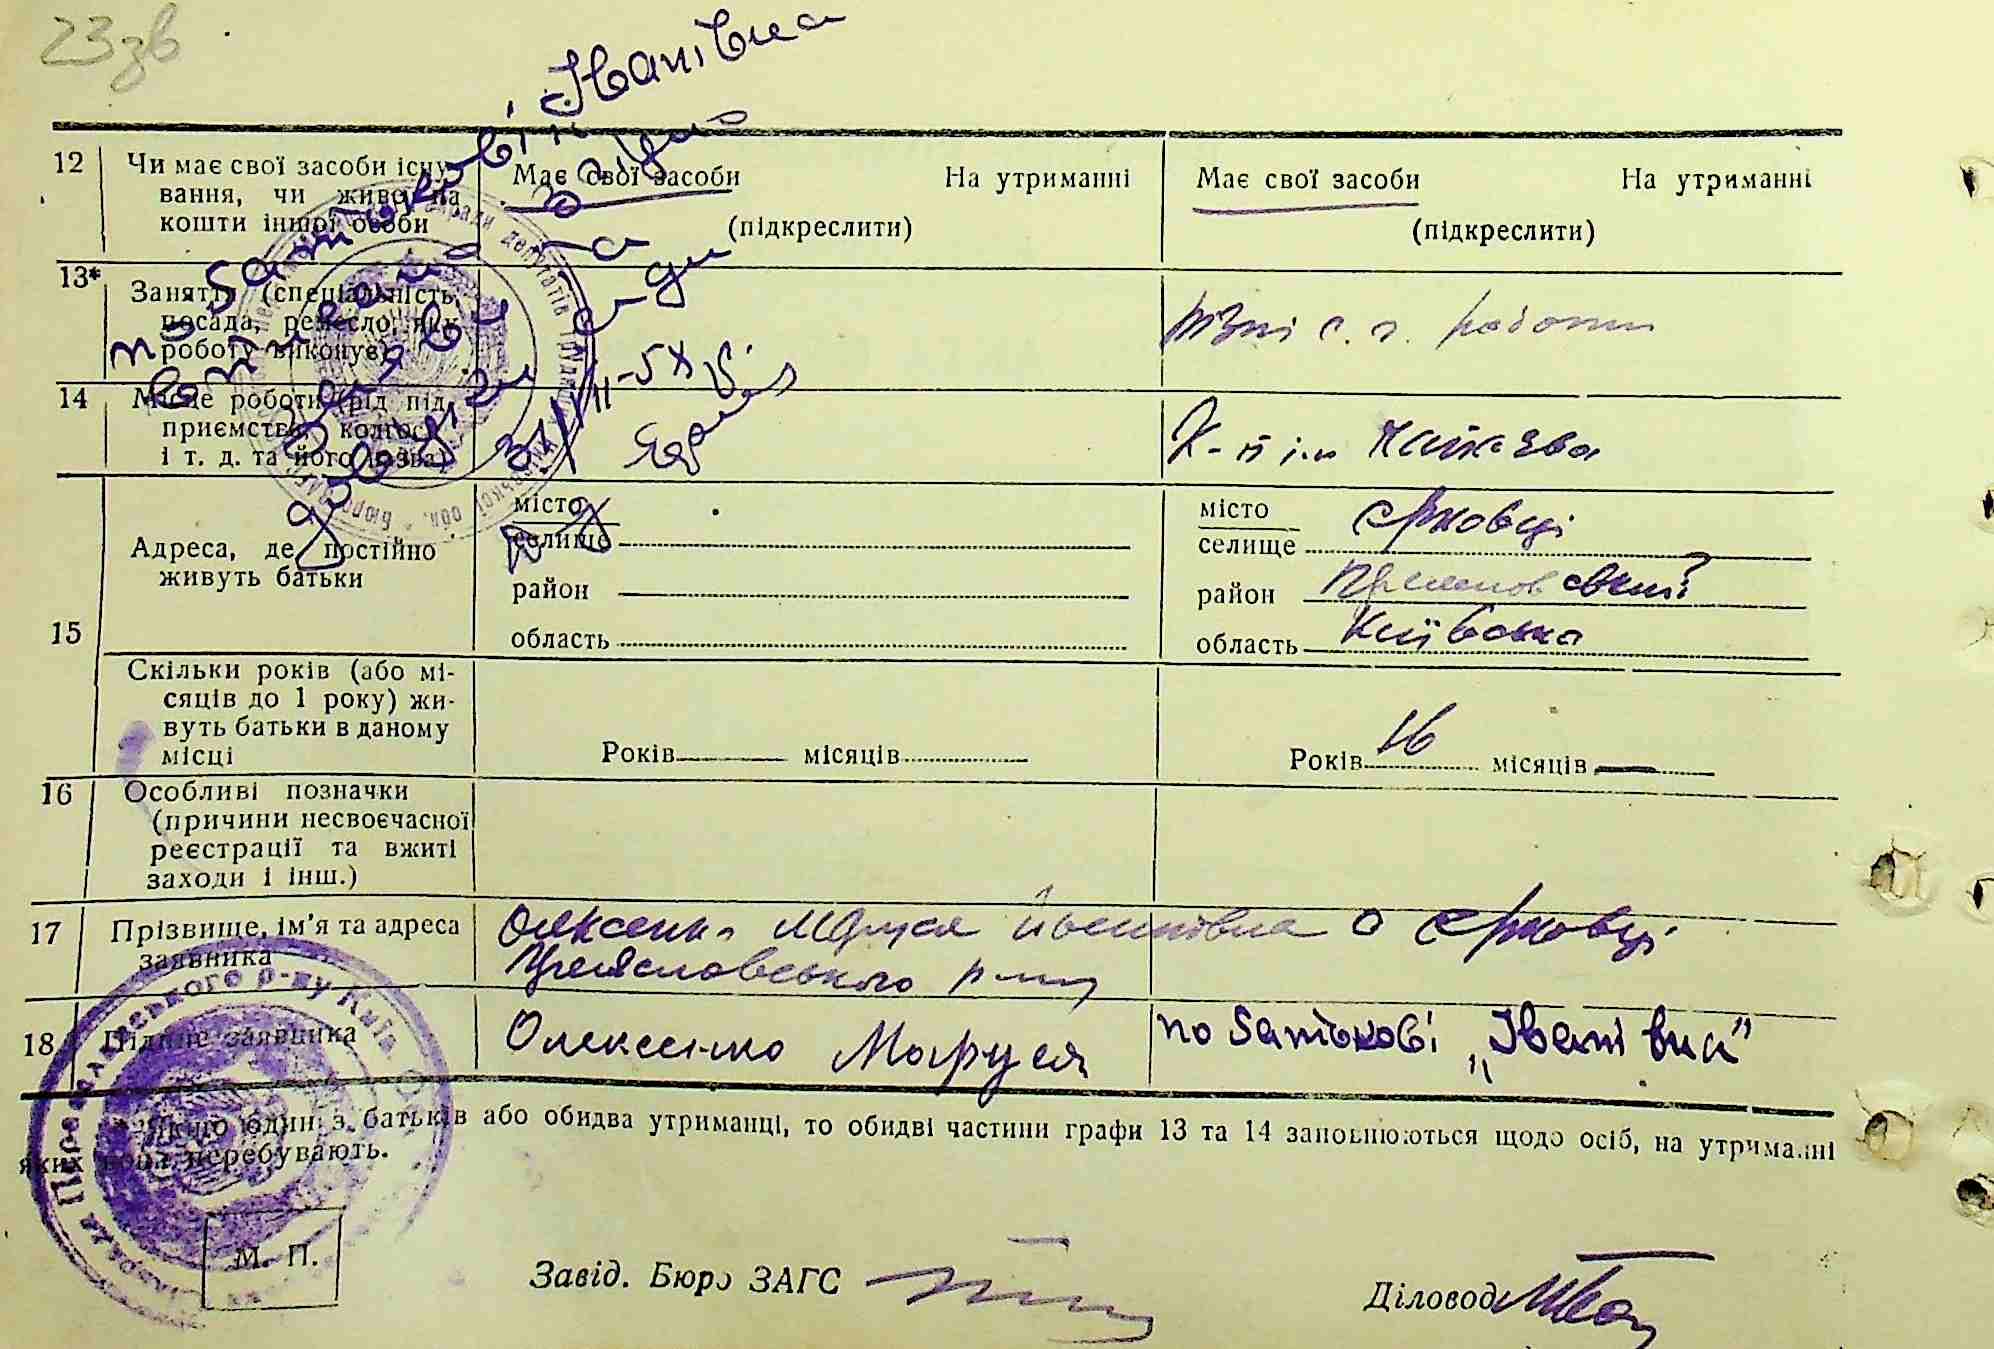 23зв
по батькові Іванівна
12
Чи має свої засоби існу-
вання, чи живе на
кошти іншої особи
Має свої засоби На утриманні
(підкреслити)
Має свої засоби На утриманні
(підкреслити)
13*
Заняття (спеціальність,
посада, ремесло, яку
роботу виконує)
різні с. г. роботи
14
Місце роботи (рід під-
приємства, колгосп
і т. д. та його назва)
К-п ім
15
Адреса, де постійно
живуть батьки
місто
селище
район
область
місто
селище Єрковці
район
область Київська
Скільки років (або мі-
сяців до 1 року) жи-
вуть батьки в даному
місці
Років місяців
Років 16 місяців —
16
Особливі позначки
(причини несвоєчасної
реєстрації та вжиті
заходи і інш.)
17
Прізвище, ім'я та адреса
заявника
Олексенко Маруся Йосипівна с Єрковці
Переяславського р-ну
18
Підпис заявника
Олексенко Маруся
по батькові „Іванівна"
Якщо один з батьків або обидва утриманці, то обидві частини графи 13 та 14 заповнюються щодо осіб, на утриманні
яких вона перебувають.
М. П.
Завід. Бюро ЗАГС
Діловод